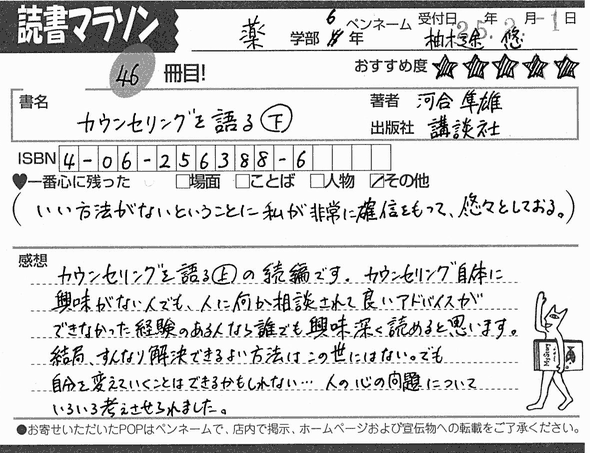 読書マラソン
薬 学部 6年 ペンネーム 柚木 悠
受付日 年 月 日
46 冊目! おすすめ度 ★★★★★
書名 カウンセリングを語る(下)
著者 河合隼雄
出版社 講談社
ISBN 4-06-256388-6
♥一番心に残った □場面 □ことば □人物 ☑その他
(いい方法がないということに私が非常に確信をもって、悠々としておる。)
感想
カウンセリングを語る(上)の続編です。カウンセリング自体に
興味がない人でも、人に何か相談されて良いアドバイスが
できなかった経験のある人なら誰でも興味深く読めると思います。
結局、すんなり解決できるよい方法はこの世にはない。でも
自分を変えていくことはできるかもしれない… 人の心の問題について
いろいろ考えさせられました。
●お寄せいただいたPOPはペンネームで、店内で掲示、ホームページおよび宣伝物への転載をご了承ください。